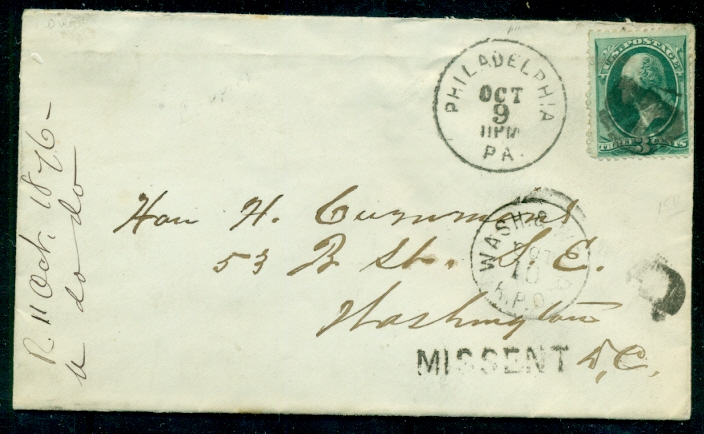 PHILADELPHIA
OCT
9
11PM
PA.
U.S. POSTAGE
THREE 3 CENTS
R. 11 Oct. 1876-
do do
Hon H.
53 B St. S.E.
Washington
D.C.
WASH. &
OCT
10
R.P.O.
MISSENT